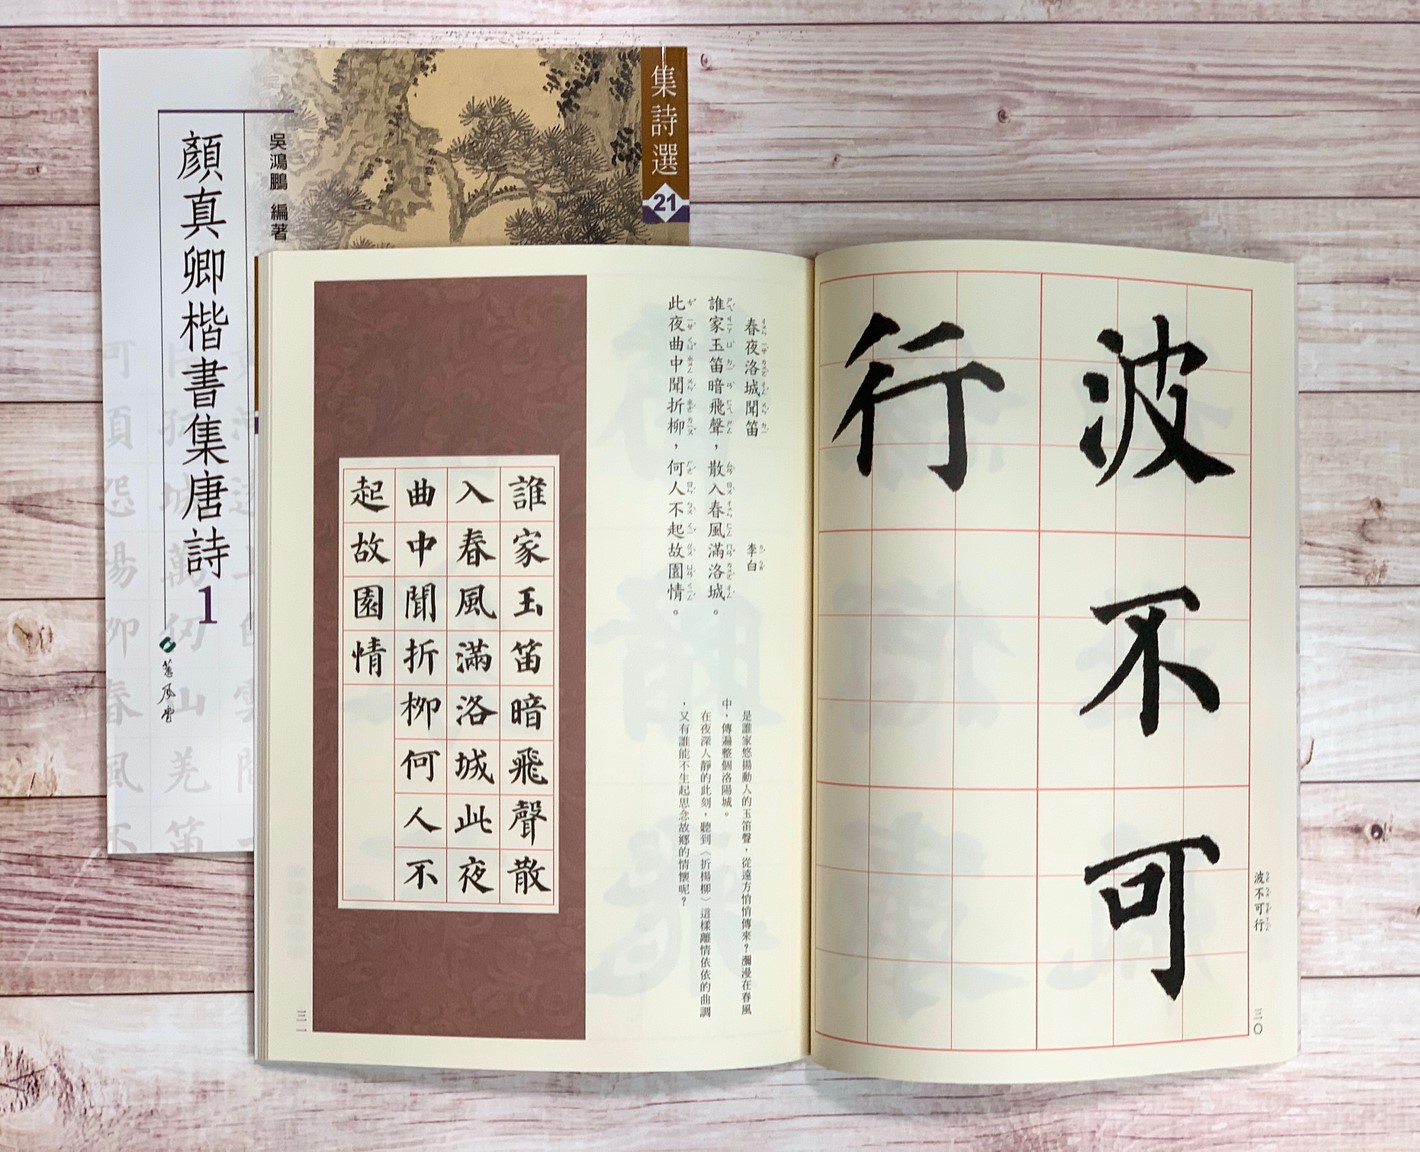 集詩選
21
吳鴻鵬 編著
顏真卿楷書集唐詩1
蕙風堂
波不可
行
波不可行
三〇
春夜洛城聞笛 李白
誰家玉笛暗飛聲，散入春風滿洛城。
此夜曲中聞折柳，何人不起故園情。
是誰家悠揚動人的玉笛聲，從遠方悄悄傳來？瀰漫在春風
中，傳遍整個洛陽城。
在夜深人靜的此刻，聽到〈折楊柳〉這樣離情依依的曲調
，又有誰能不生起思念故鄉的情懷呢？
誰家玉笛暗飛聲散
入春風滿洛城此夜
曲中聞折柳何人不
起故園情
三一